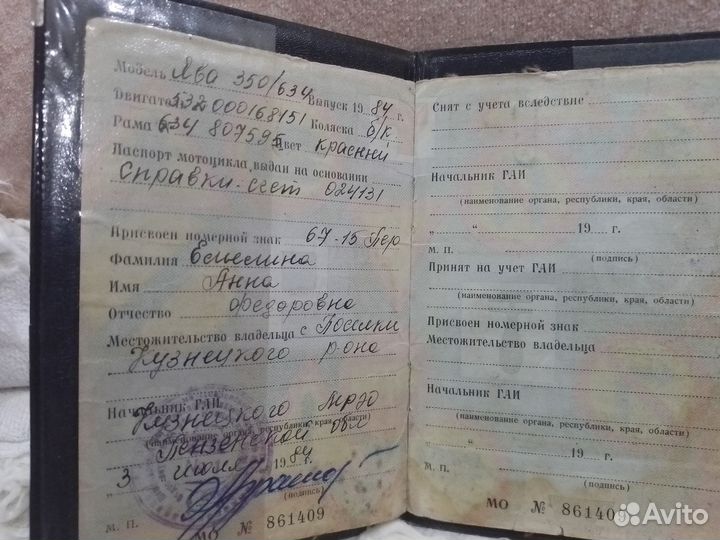 Модель Ява 350/634 Выпуск 1984 г.
Двигатель № 532000168151 Коляска б/к
Рама № 634 807595 Цвет красный
Паспорт мотоцикла выдан на основании
Справки-счет 024131
Присвоен номерной знак 67-15 Пер
Фамилия
Имя Анна
Отчество Федоровна
Местожительство владельца с Поселки
Кузнецкого р-она
Начальник ГАИ
Кузнецкого
(наименование органа, республики, края, области)
Пензенской обл
„ 3 июля 1984
(подпись)
М. П.
МО № 861409
Снят с учета вследствие
Начальник ГАИ
(наименование органа, республики, края, области)
„ “ 19 г.
М. П. (подпись)
Принят на учет ГАИ
(наименование органа, республики, края, области)
Присвоен номерной знак
Местожительство владельца
Начальник ГАИ
(наименование органа, республики, края, области)
„ “ 19 г.
М. П. (подпись)
МО № 861409
Avito